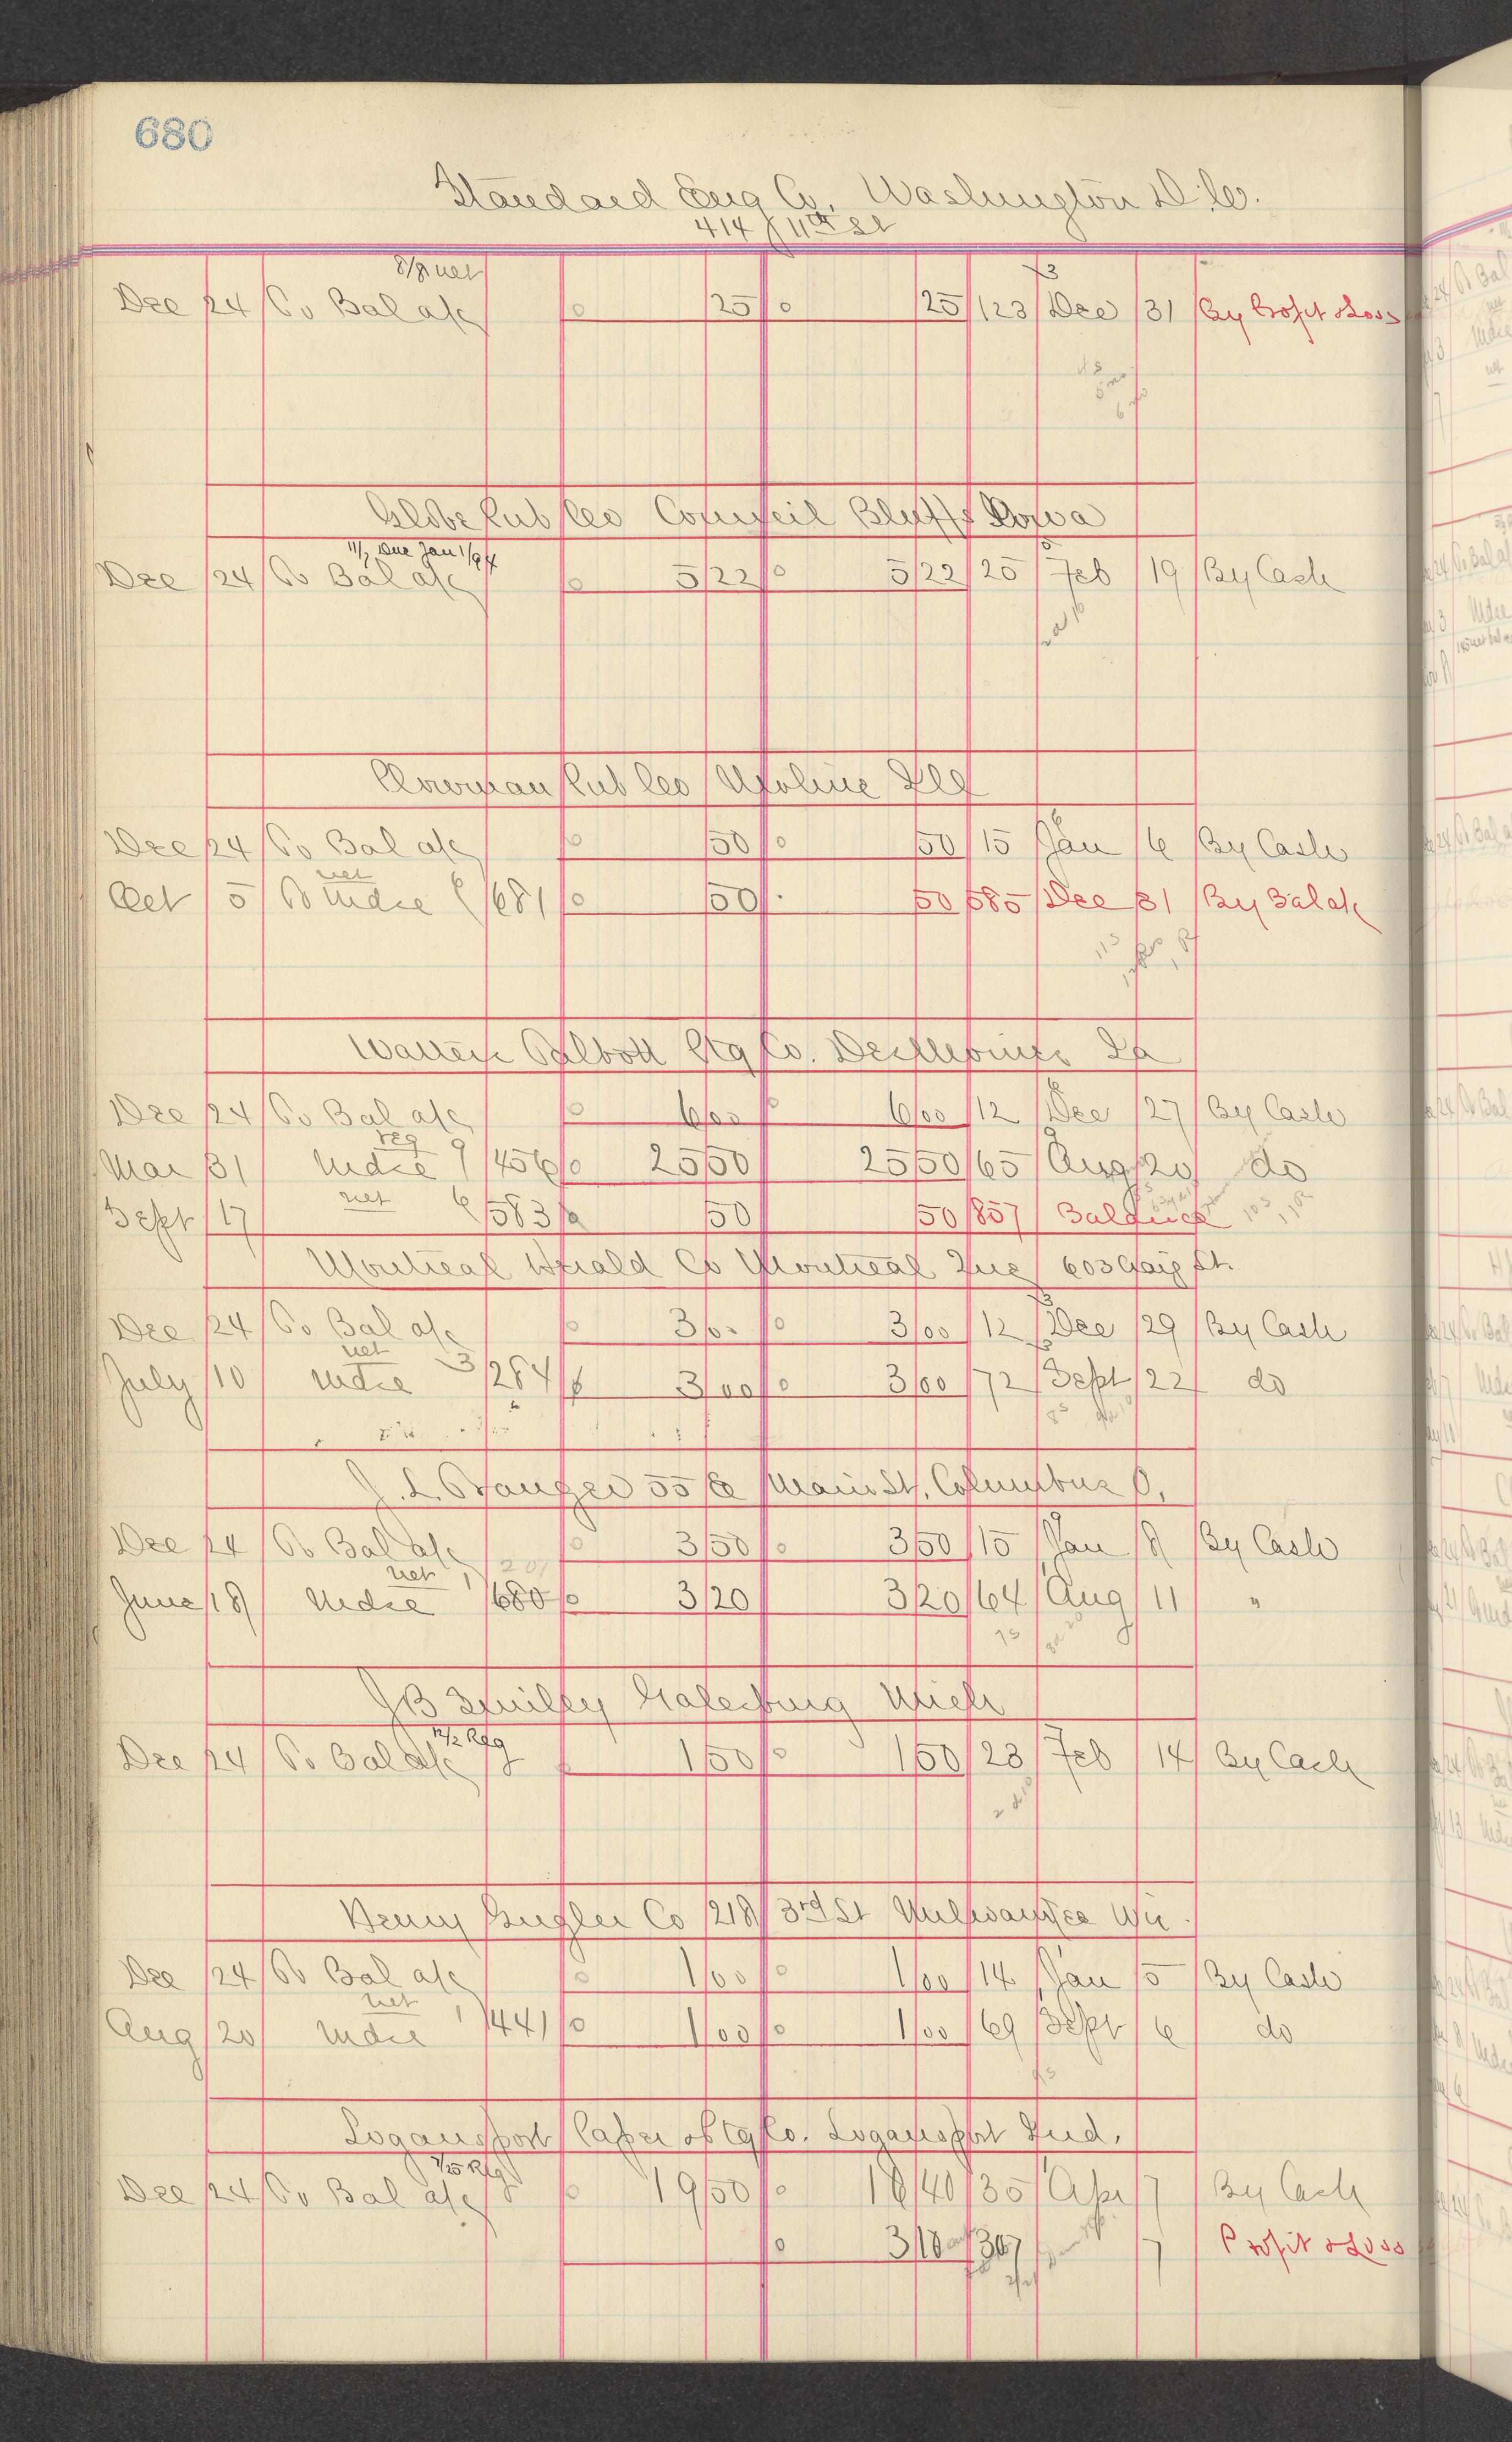 680
Standard Eng Co. Washington D.C.
414 11th St
8/8 net
Dec 24 To Bal a/c 25 25 123 Dec 31 By Profit & Loss
Globe Pub Co Council Bluffs Iowa
Due Jan 1/94
Dec 24 To Bal a/c 5 22 5 22 25 Feb 19 By Cash
Plowman Pub Co Moline Ill
Dec 24 To Bal a/c 50 50 15 Jan 6 By Cash
net
Oct 5 To Mdse 681 50 50 585 Dec 31 By Bal a/c
Talbott Ptg Co. Des Moines Ia
Dec 24 To Bal a/c 6 00 6 00 12 Dec 27 By Cash
reg
Mar 31 Mdse 9 456 25 50 25 50 65 Aug 20 do
net
Sept 17 6 583 50 50 857 Balance
Montreal Herald Co Montreal Que 603 Craig St.
Dec 24 To Bal a/c 3 00 3 00 12 Dec 29 By Cash
net
July 10 Mdse 3 284 3 00 3 00 72 Sept 22 do
J. L. 55 E Main St. Columbus O.
Dec 24 To Bal a/c 3 50 3 50 15 Jan 8 By Cash
net 201
June 18 Mdse 1 680 3 20 3 20 64 Aug 11 "
J B Smilley Galesburg Mich
12/2 Reg
Dec 24 To Bal a/c 1 50 1 50 23 Feb 14 By Cash
Henry Gugler Co 218 3rd St Milwaukee Wis.
Dec 24 To Bal a/c 1 00 1 00 14 Jan 5 By Cash
net
Aug 20 Mdse 1 441 1 00 1 00 69 Sept 6 do
Logansport Paper & Ptg Co. Logansport Ind.
Reg
Dec 24 To Bal a/c 19 50 16 40 35 Apr 7 By Cash
3 10 307 7 Profit & Loss